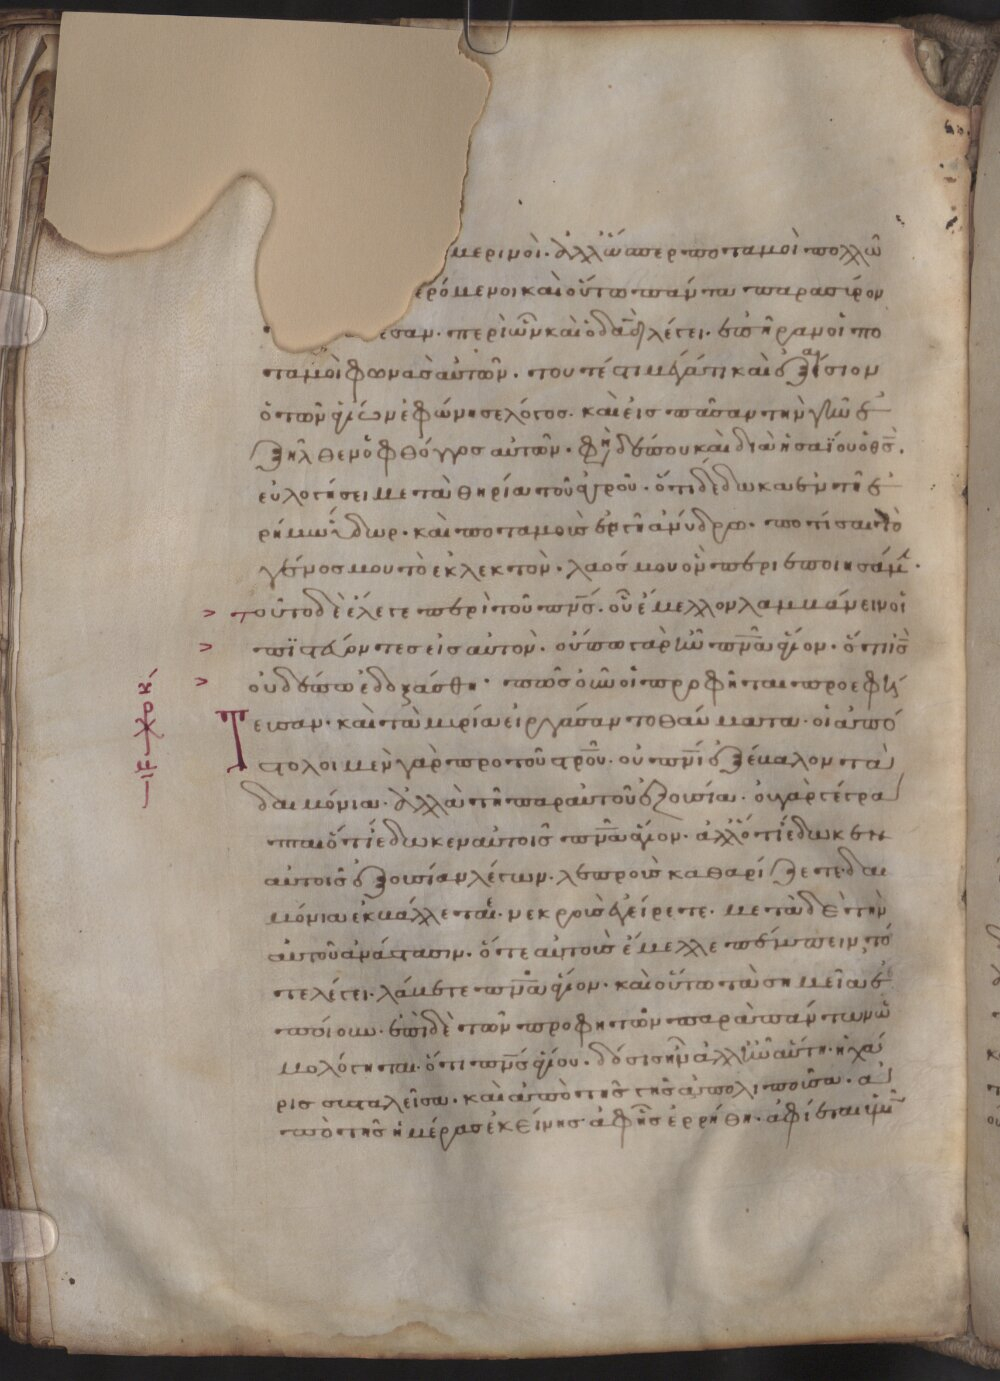 μερινοὶ. ἀλλ' ὥσπερ ποταμοὶ πολλῶ
ερόμενοι καὶ οὕτω πάντα παρασύρον
εσαν. περὶ ὧν καὶ ὁ δαδ λέγει. ἐπῆραν οἱ πο
ταμοὶ φωνὰς αὐτῶν. τουτέστι βλάστη καὶ ἐξαίσιον
ὁ τῶν ἁγίων ἐφώνησε λόγος. καὶ εἰς πᾶσαν τὴν γῆν ἐ
ξῆλθεν ὁ φθόγγος αὐτῶν. καὶ διὰ ἡσαΐου ὁ θς.
εὐλογήσει με τὰ θηρία τοῦ ἀγροῦ. ὅτι δέδωκα ἐν τῆ ἐ
ρήμω ὕδωρ. καὶ ποταμοὺς ἐν τῆ ἀνύδρω. ποτίσαι τὸ
γένος μου τὸ ἐκλεκτὸν. λαόν μου ὃν περιεποιησάμ.
τοῦτο δὲ ἔλεγε περὶ τοῦ πνς. οὗ ἔμελλον λαμβάνειν οἱ
πιστεύοντες εἰς αὐτὸν. οὔπω γὰρ ἦν πνα ἅγιον. ὅτι ις
οὐδέπω ἐδοξάσθη. πῶς οὖν οἱ προφῆται προεφή
τευσαν. καὶ τὰ μυρία εἰργάσαντο θαύματα. οἱ ἀπό
στολοι μὲν γὰρ πρὸ τοῦ στρου. οὐ πνι ἐξέβαλον τὰ
δαιμόνια. ἀλλὰ τῆ παρ' αὐτοῦ ἐξουσία. οὐ γὰρ γέγρα
πται ὅτι ἔδωκεν αὐτοῖς πνα ἅγιον. ἀλλ' ὅτι ἔδωκεν
αὐτοῖς ἐξουσίαν λέγων. λεπροὺς καθαρίζετε. δαι
μόνια ἐκβάλλεται. νεκροὺς ἐγείρετε. μετὰ δὲ τὴν
αὐτοῦ ἀνάστασιν. ὅτε αὐτοὺς ἔμελλε πέμπειν, τό
τε λέγει. λάβετε πνα ἅγιον. καὶ οὕτω τὰ σημεῖα ἐ
ποίουν. ἐπὶ δὲ τῶν προφητῶν παρὰ πάντων ὡ
μολόγηται. ὅτι πνς ἁγίου. δόσις ἦν ἀλλ' ἦν αὕτη ἡ χά
ρις συσταλεῖσα. καὶ ἀπὸ τῆς γῆς ἀπολιποῦσα. ἀ
πὸ τῆς ἡμέρας ἐκείνης ἀφ' ἧς ἐρρήθη. ἀφίεται ὑμῖν